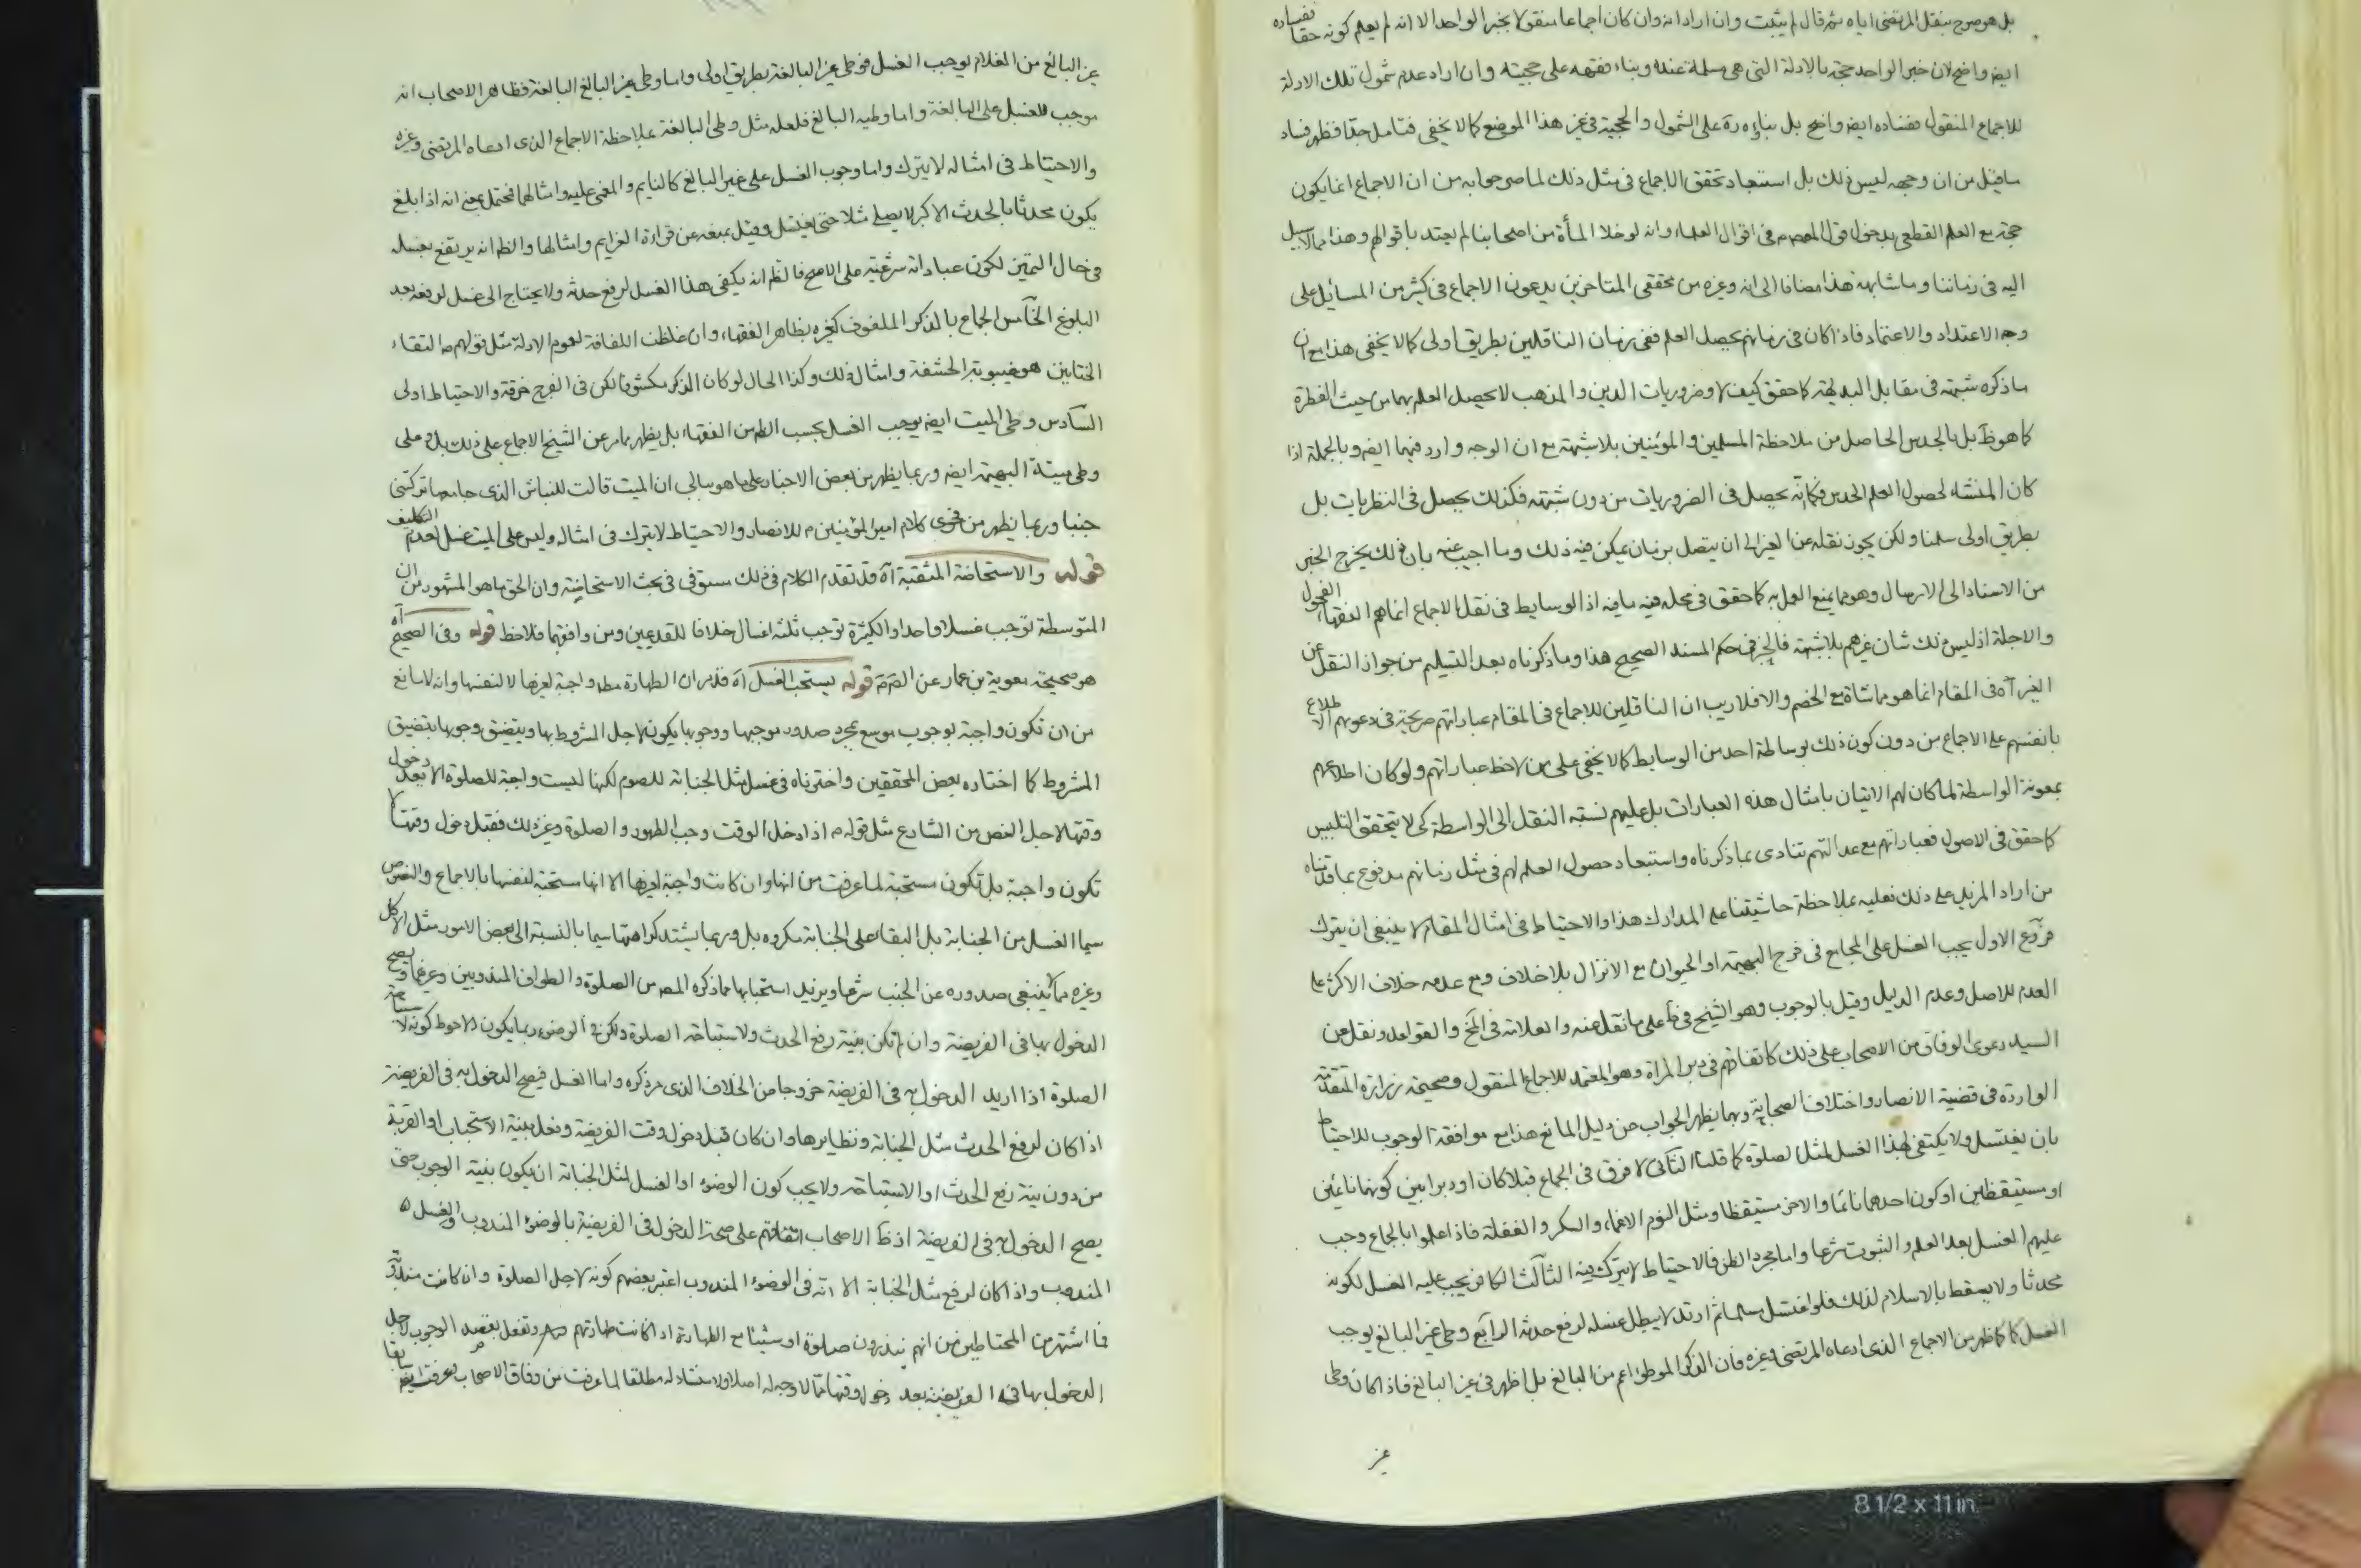 بل هو صرح بنقل المرتضى اياه ثم قال لم يثبت وان اراد انه وان كان اجماعا منقولا بخبر الواحد الا انه لم يعلم كونه حقا ففساده
ايض واضح لان خبر الواحد حجة بالادلة التي هي مسلمة عنده وبناء فقهه على حجيته وان اراد عدم شمول تلك الادلة
للاجماع المنقول ففساده ايض واضح بل بناؤه ره على الشمول والحجية في غير هذا الموضع كما لا يخفى فتامل جدا فظهر فساد
ما قيل من ان وجهه ليس ذلك بل استبعاد تحقق الاجماع في مثل ذلك لما صرحوا به من ان الاجماع انما يكون
حجة مع العلم القطعي بدخول قول المعصوم في اقوال العلماء وانه لو خلا المأة من اصحابنا لم يعتد باقوالهم وهذا مما لا سبيل
اليه في زماننا وما شابهه هذا مضافا الى انه وغيره من محققي المتاخرين يدعون الاجماع في كثير من المسائل على
وجه الاعتداد والاعتماد فاذا كان في زمانهم يحصل العلم ففي زمان الناقلين بطريق اولى كما لا يخفى هذا مع ان
ما ذكره شبهة في مقابل البديهة كما حقق كيف لا وضروريات الدين والمذهب لا يحصل العلم بهما من حيث الفطرة
كما هو ظ بل بالحدس الحاصل من ملاحظة المسلمين والمؤمنين بلا شبهة مع ان الوجه وارد فيهما ايض وبالجملة اذا
كان المنشاء لحصول العلم الحدس فكما انه يحصل في الضروريات من دون شبهة فكذلك يحصل في النظريات بل
بطريق اولى سلمنا ولكن يجوز نقله عن الغير الى ان يتصل بزمان يمكن فيه ذلك وما اجيب عنه بان ذلك يخرج الخبر
من الاسناد الى الارسال وهو مما يمنع العمل به كما حقق في محله فيه ما فيه اذ الوسايط في نقل الاجماع انما هم الفقهاء الفحول
والاجلة اذ ليس ذلك شان غيرهم بلا شبهة فالخبر في حكم المسند الصحيح هذا وما ذكرناه بعد التسليم من جواز النقل عن
الغير آه في المقام انما هو مماشاة مع الخصم والا فلا ريب ان الناقلين للاجماع في المقام عباراتهم صريحة في دعويهم الاطلاع
بانفسهم على الاجماع من دون كون ذلك بوساطة احد من الوسايط كما لا يخفى على من لاحظ عباراتهم ولو كان اطلاعهم
بمعونة الواسطة لما كان لهم الاتيان بامثال هذه العبارات بل عليهم نسبة النقل الى الواسطة كي لا يتحقق التلبيس
كما حقق في الاصول فعباراتهم مع عدالتهم تنادى بما ذكرناه واستبعاد حصول العلم لهم في مثل زمانهم مدفوع بما قلناه
من اراد المزيد على ذلك فعليه بملاحظة حاشيتنا على المدارك هذا والاحتياط في امثال المقام لا ينبغي ان يترك
فروع الاول يجب الغسل على المجامع في فرج البهيمة او الحيوان مع الانزال بلا خلاف ومع عدمه خلاف الاكثر على
العدم للاصل وعدم الدليل وقيل بالوجوب وهو الشيخ في ط على ما نقل عنه والعلامة في لخ والقواعد ونقل عن
السيد دعوى الوفاق من الاصحاب على ذلك كاتفاقهم في دبر المراة وهو المعتمد للاجماع المنقول وصحيحة زرارة المتقدمة
الواردة في قضية الانصار واختلاف الصحابة وبما يظهر الجواب عن دليل المانع هذا مع موافقة الوجوب للاحتياط
بان يغتسل ولا يكتفى بهذا الغسل لمثل لصلوة كما قلنا الثاني لا فرق في الجماع قبلا كان او دبرا بين كونهما نائمين
او مستيقظين او كون احدهما نائما والاخر مستيقظا ومثل النوم الاغماء والسكر والغفلة فاذا علموا بالجماع وجب
عليهم الغسل بعد العلم والثبوت شرعا واما مجرد الظن فالاحتياط لا يترك فيه الثالث الكافر يجب عليه الغسل لكونه
محدثا ولا يسقط بالاسلام لذلك فلو اغتسل مسلما ثم ارتد لا يبطل غسله لرفع حدثه الرابع وطى غير البالغ يوجب
الغسل كما ظهر من الاجماع الذي ادعاه المرتضى وغيره فان الذكر الموطؤ اعم من البالغ بل اظهر في غير البالغ فاذا كان وطى
غير
غير البالغ من الغلام يوجب الغسل فوطى غير البالغة بطريق اولى واما وطى غير البالغ البالغة فظاهر الاصحاب انه
موجب للغسل على البالغة واما وطيه البالغ فلعله مثل وطى البالغة بملاحظة الاجماع الذي ادعاه المرتضى وغيره
والاحتياط في امثاله لا يترك واما وجوب الغسل على غير البالغ كالنايم والمغمى عليه وامثالهما فمحتمل بمعنى انه اذا بلغ
يكون محدثا بالحدث الاكبر لا يصلي مثلا حتى يغتسل وقيل بمنعه عن قراءة العزايم وامثالها والظ انه يرتفع بغسله
في حال التميز لكون عباداته شرعية على الاصح فالظ انه يكفي هذا الغسل لرفع حدثه ولا يحتاج الى غسل لرفعه بعد
البلوغ الخامس الجماع بالذكر الملفوف كغيره بظاهر الفقهاء وان غلظت اللفافة لعموم الادلة مثل قولهم ع التقاء
الختانين هو غيبوبة الحشفة وامثال ذلك وكذا الحال لو كان الذكر مكشوفا لكن في الفرج خرقة والاحتياط اولى
السادس وطى الميت ايض يوجب الغسل بحسب الظ من الفقهاء بل يظهر مما مر عن الشيخ الاجماع على ذلك بل وعلى
وطى ميتة البهيمة ايض وربما يظهر من بعض الاخبار على ما هو ببالي ان الميت قالت للنباش الذي جامعها تركتني
جنبا وربما يظهر من فحوى كلام امير المؤمنين ع للانصار والاحتياط لا يترك في امثاله وليس على الميت غسل لعدم التكليف
قوله والاستحاضة المثقبة آه قد تقدم الكلام في ذلك مستوفى في بحث الاستحاضة وان الحق ما هو المشهور من ان
المتوسطة توجب غسلا واحدا والكثيرة توجب ثلثة اغسال خلافا للقديمين ومن وافقهما فلاحظ قوله وفي الصحيح آه
هو صحيحة معوية بن عمار عن الص ع قوله يستحب الغسل آه قد مر ان الطهارة مط واجبة لغيرها لا لنفسها وانه لا مانع
من ان تكون واجبة بوجوب موسع بمجرد صدور موجبها ووجوبها يكون لاجل المشروط بها ويتضيق وجوبها بتضيق
المشروط كما اختاره بعض المحققين واخترناه في غسل مثل الجنابة للصوم لكنها ليست واجبة للصلوة الا بعد دخول
وقتها لاجل النص من الشارع مثل قوله ع اذا دخل الوقت وجب الطهور والصلوة وغير ذلك فقبل دخول وقتها لا
تكون واجبة بل تكون مستحبة لما عرفت من انها وان كانت واجبة لغيرها الا انها مستحبة لنفسها بالاجماع والنصوص
سيما الغسل من الجنابة بل البقاء على الجنابة مكروه بل وربما يشتد كراهتها سيما بالنسبة الى بعض الامور مثل الاكل
وغيره مما لا ينبغي صدوره عن الجنب شرعا ويزيد استحبابها مما ذكره المص من الصلوة والطواف المندوبين وغيرهما ويصح
الدخول بها في الفريضة وان لم تكن بنية رفع الحدث ولا استباحة الصلوة ولكن في الوضوء ربما يكون الاحوط كونه لاستباحة
الصلوة اذا اريد الدخول به في الفريضة خروجا من الخلاف الذي مر ذكره واما الغسل فيصح الدخول به في الفريضة
اذا كان لرفع الحدث مثل الجنابة ونظايرها وان كان قبل دخول وقت الفريضة وفعل بنية الاستحباب او القربة
من دون نية رفع الحدث او الاستباحة ولا يجب كون الوضوء او الغسل لمثل الجنابة ان يكون بنية الوجوب حتى
يصح الدخول به في الفريضة اذ ظ الاصحاب اتفاقهم على صحة الدخول في الفريضة بالوضوء المندوب والغسل
المندوب واذا كان لرفع مثل الجنابة الا انه في الوضوء المندوب اعتبر بعضهم كونه لاجل الصلوة وان كانت مندوبة
فما اشتهر من المحتاطين من انهم ينذرون صلوة او شيئا مع الطهارة اذا كانت طهارتهم وتفعل بقصد الوجوب لاجل
الدخول بها في الفريضة بعد دخول وقتها مما لا وجه له اصلا ولا منشاء له مطلقا لما عرفت من وفاق الاصحاب وعرفت ايض سابقا
8 1/2 x 11 in.